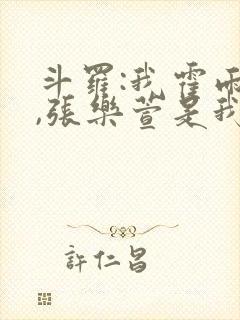 斗羅:我霍雨
,張樂萱是我
許仁昌